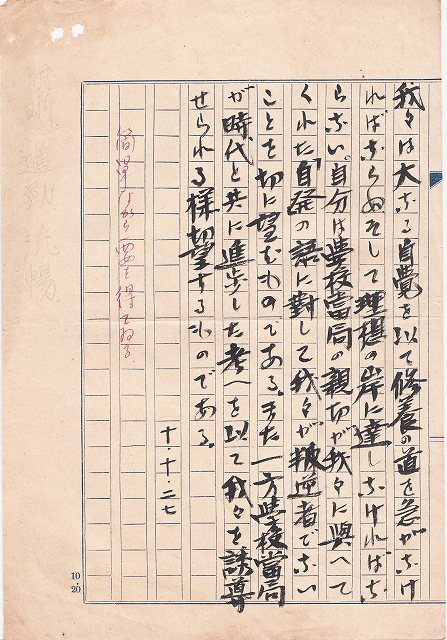 我々は大なる自覺を以て修養の道を急がなけ
ればならぬそして理想の岸に達しなければな
らない。自分は學校當局の親切が我々に與へて
くれた「自發」の語に對して我々が叛逆者でない
ことを切に望むものである。また一方學校當局
が時代と共に進歩した考へを以て我々を誘導
せられる様切望するものである。
十・十・二七
簡単ながら要を得てゐる
運動流暢
10・20